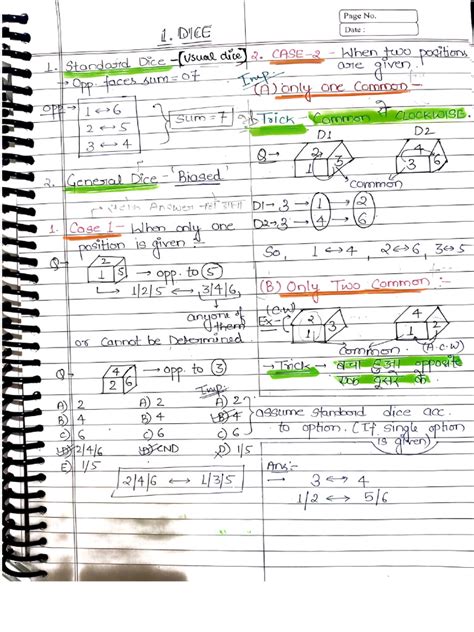 Page No.
Date :
1. DICE
1. Standard Dice - (usual dice)
→ Opp. faces sum = 07
opp →
1 ↔ 6
2 ↔ 5
3 ↔ 4
Sum = 7
2. General Dice - 'Biased'
1. Case 1 - When only one
position is given :-
Q→
2
1 5
→ opp. to (5)
→ 1/2/5 ↔ 3/4/6
anyone of
them
or Cannot be Determined
Q→
4
2 6
→ opp. to (3)
Imp:-
A) 2
B) 4
C) 6
D) 2/4/6
E) 1/5
A) 2
B) 4
C) 6
D) CND
A) 2
B) 4
C) 6
D) 1/5
assume standard dice acc.
to option. (If single option
is given)
2/4/6 ↔ 1/3/5
2. CASE-2 - When two positions
are given.
Imp.
(A) Only one Common :-
→ Trick - Common CLOCKWISE.
D1
D2
Q→
2
1 3
4
3 6
common
D1→ 3 → 1 → 2
D2→ 3 → 4 → 6
So, 1 ↔ 4, 2 ↔ 6, 3 ↔ 5
(B) Only Two Common :-
(C.W)
Ex-
2
1 3
4
1 2
Common (A.C.W)
→ Trick → बचा हुआ opposite
एक दूसरे के.
Ans:-
→ 3 ↔ 4
1/2 ↔ 5/6